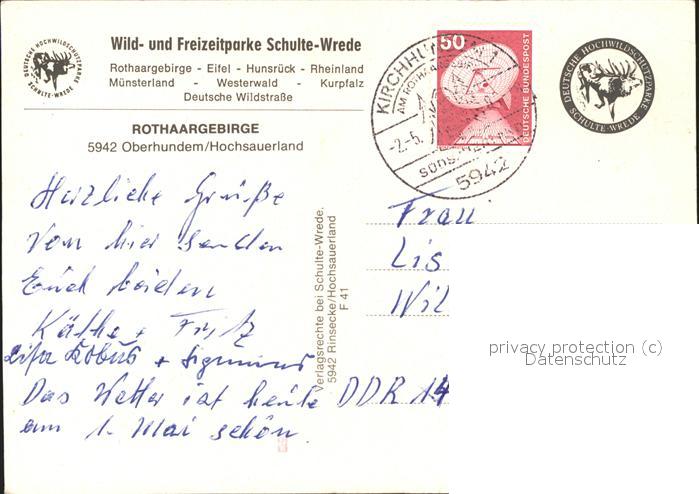 Wild- und Freizeitparke Schulte-Wrede
Rothaargebirge - Eifel - Hunsrück - Rheinland
Münsterland - Westerwald - Kurpfalz
Deutsche Wildstraße
ROTHAARGEBIRGE
5942 Oberhundem/Hochsauerland
DEUTSCHE HOCHWILDSCHUTZPARKE
SCHULTE-WREDE
50
DEUTSCHE BUNDESPOST
KIRCHHU
-2.-5.
5942
DEUTSCHE HOCHWILDSCHUTZPARKE
SCHULTE-WREDE
Herzliche Grüße
von hier senden
Euch beiden
Käthe + Fritz
+ Sigmund
Das Wetter ist heute
am 1. Mai schön
Verlagsrechte bei Schulte-Wrede,
5942 Rinsecke/Hochsauerland
F 41
Frau
Lis
Wil
DDR 14
privacy protection (c)
Datenschutz